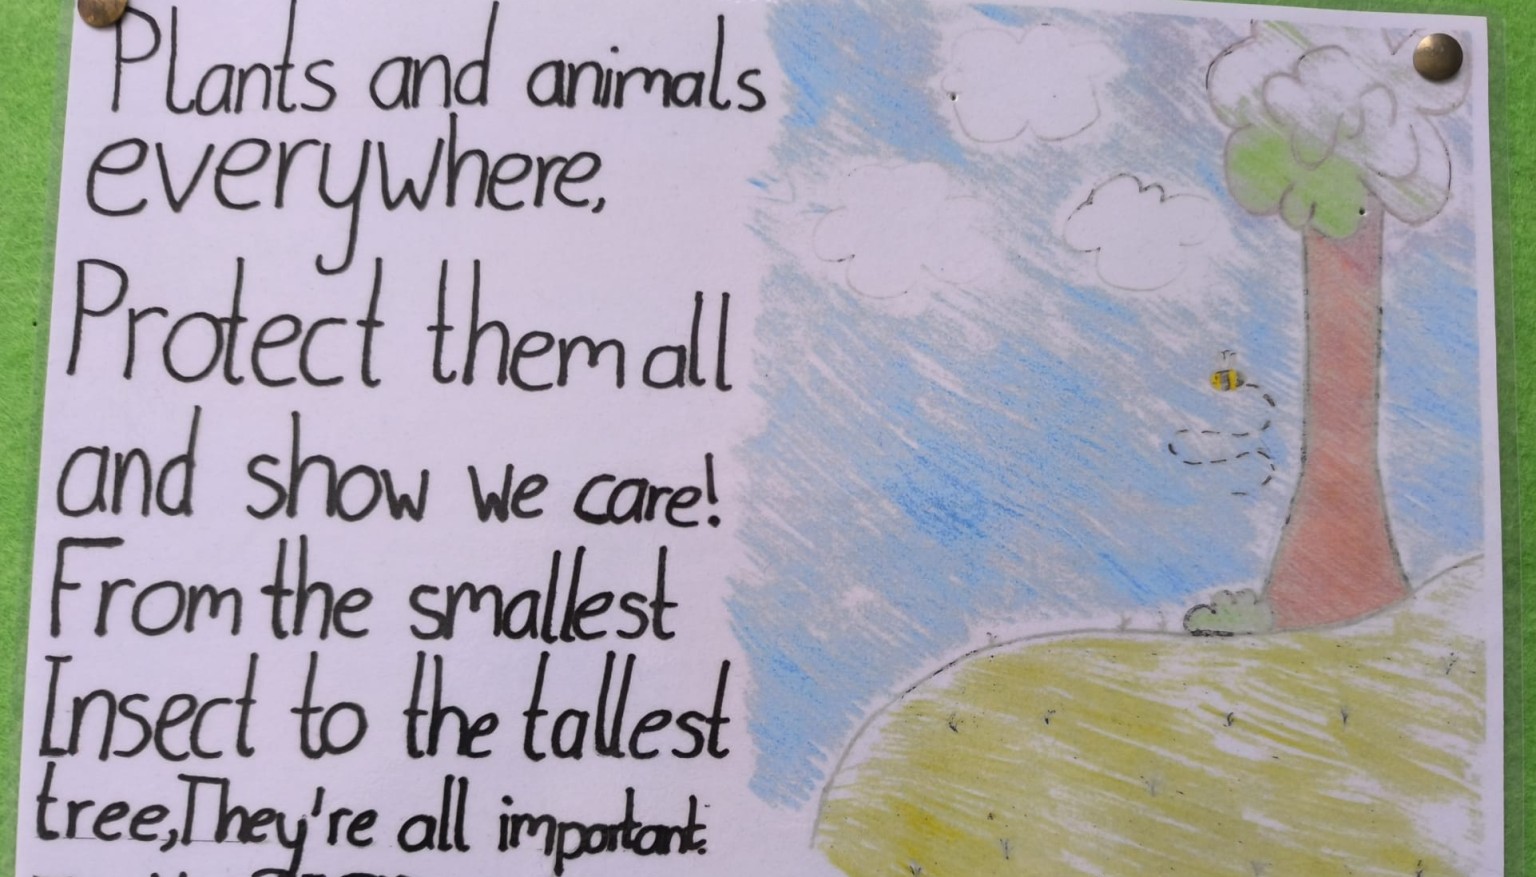 Plants and animals
everywhere,
Protect them all
and show we care!
From the smallest
Insect to the tallest
tree, They're all important.